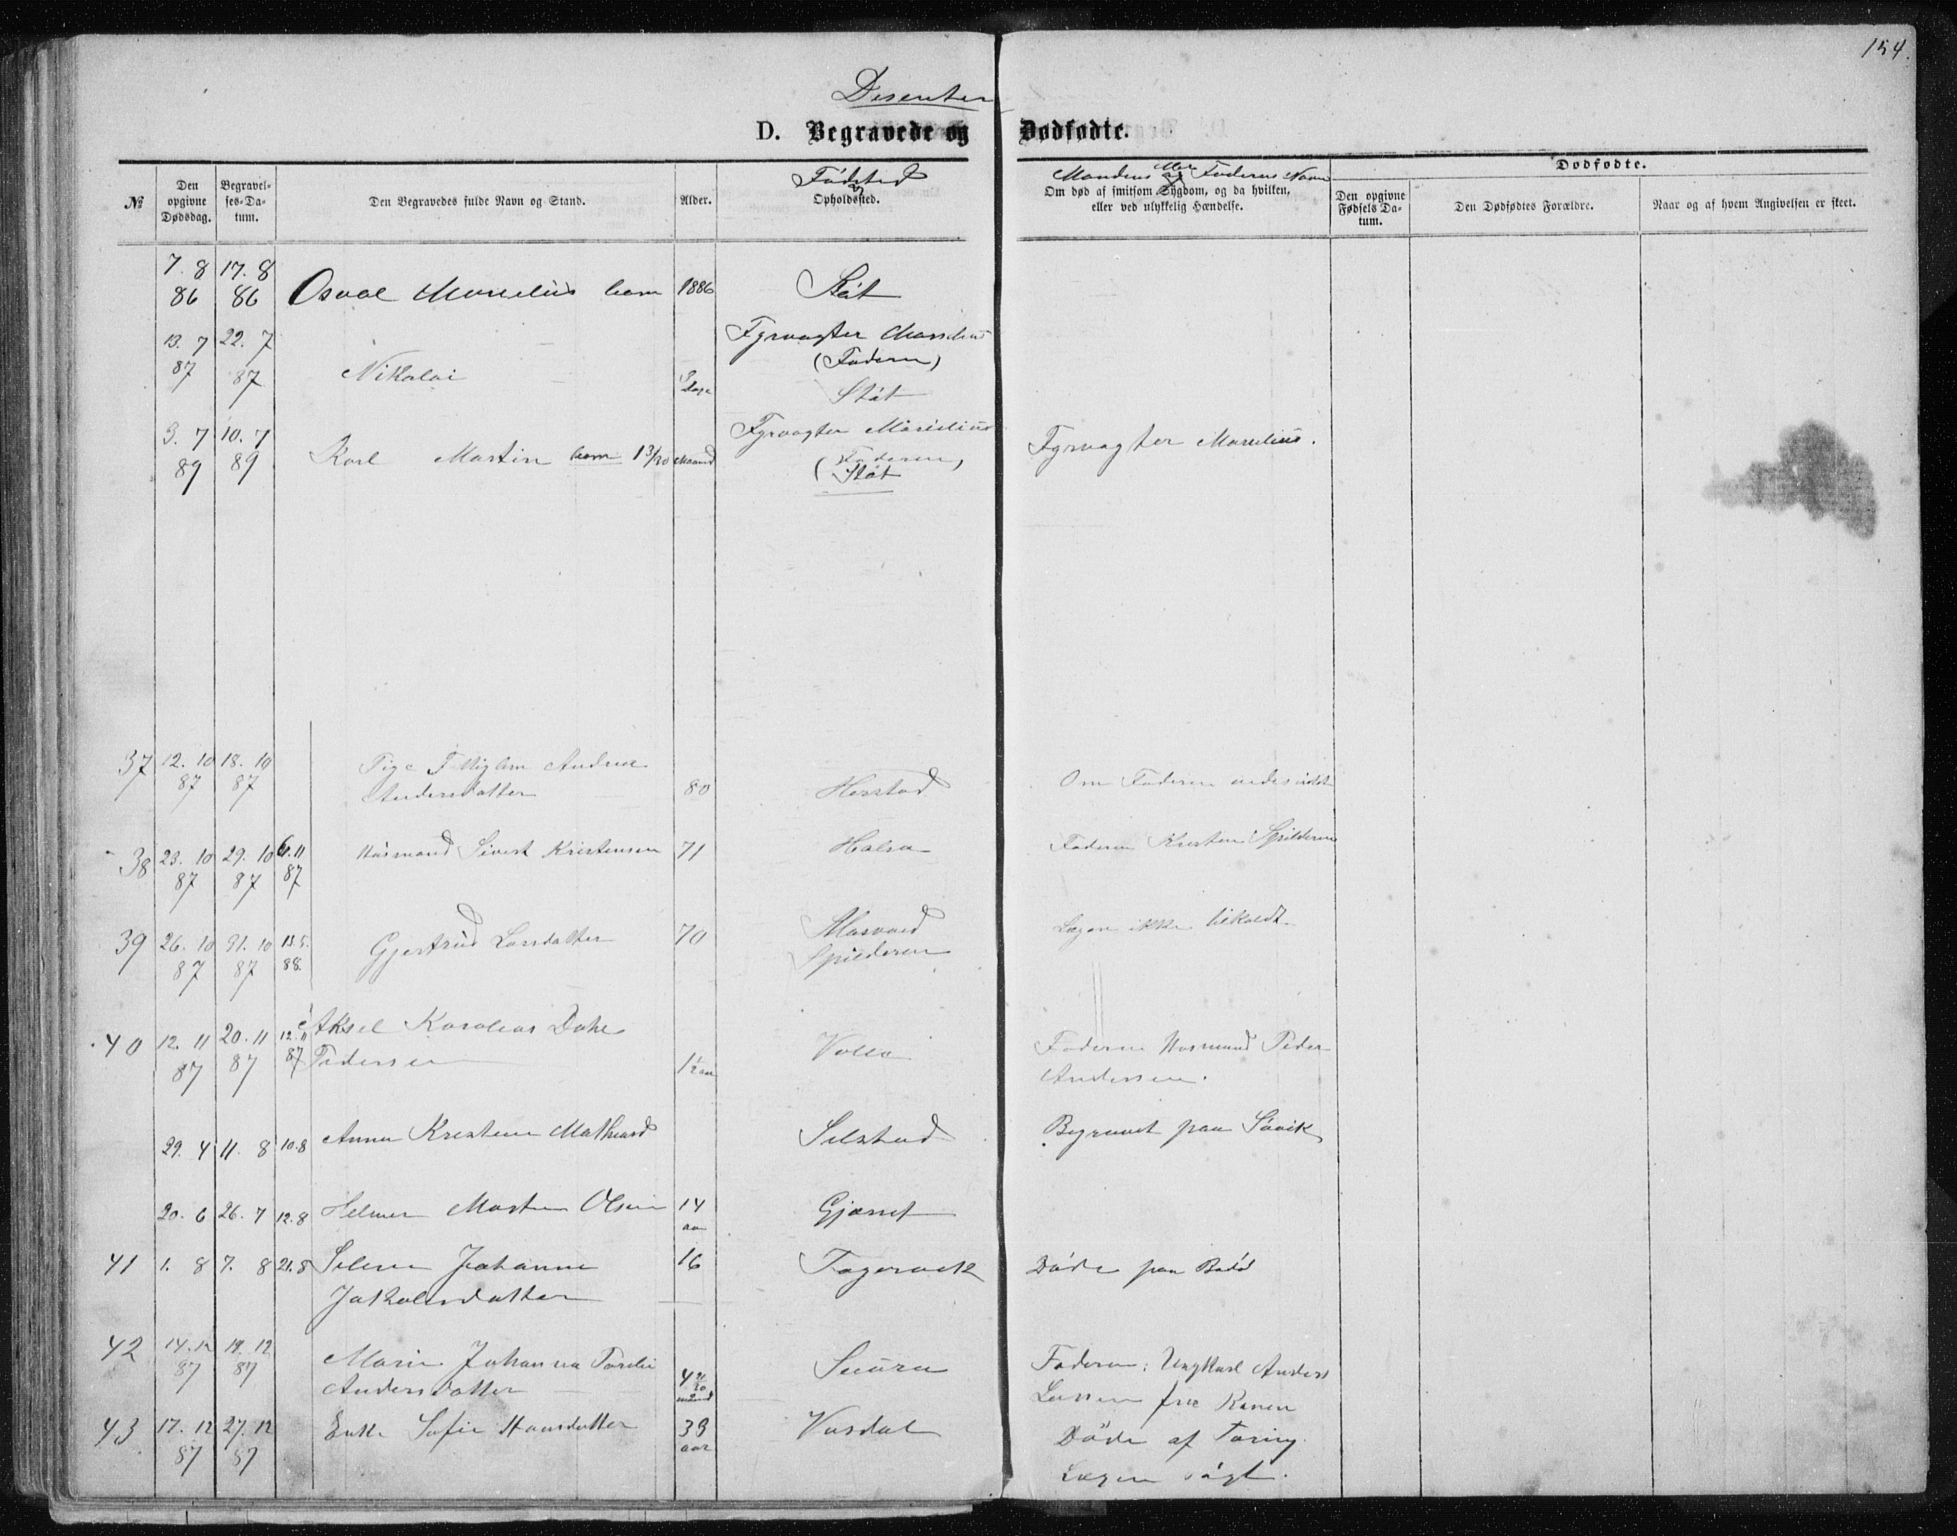 154.
Disenter
D. Begravede og Dødfødte.
Fødsted
og
Mandens eller Faderens Navn
Dødfødte.
№
Den opgivne Dødsdag.
Begravelses-Datum.
Den Begravedes fulde Navn og Stand.
Alder.
Opholdssted.
Om død af smitsom Sygdom, og da hvilken, eller ved ulykkelig Hændelse.
Den opgivne Fødsels Datum.
Den Dødfødtes Forældre.
Naar og af hvem Angivelsen er skeet.
7. 8 86 17. 8 86 Osval Marselius barn 1886 Støt
13. 7 87 22. 7 87 Nikolai dage Fyrvogter Marselius
(Faderen)
Støt
3. 7 89 10. 7 89 Karl Martin barn 1 3/30 Maaned Fyrvogter Marselius Fyrvogter Marselius.
(Faderen)
Støt
37 12. 10 87 18. 10 87 Pige Andrea
Andersdatter 80 Herstad Om Faderen
38 23. 10 87 29. 10 87 6. 11 87 Husmand Sivert Kristensen 71 Halsa Faderen Kristen Spilderen
39 26. 10 87 31. 10 87 13. 5. 88. Gjertrud Larsdatter 70
Spilderen Lægen ikke tilkaldt
40 12. 11 87 20. 11 87 12. 11 87 Aksel Karolius Dahl
Pedersen 1½ aar Valla Faderen Husmand Peder
Andersen.
29. 4 11. 8 10. 8 Anna Kristine Mathiasd Selstad Begravet paa Søvik
20. 6 26. 7 12. 8 Helmer Martin Olsen 14 aar
41 1. 8 7. 8 21. 8 Selma Johanna
Jakobsdatter 16 Fagervik Døde paa Bodø
42 14. 12 87 19. 12 87 Marie Johanna
Andersdatter Maaned Faderen: Ungkarl Anders
Larsen fra Ranen
43 17. 12 87 27. 12 87 Enke Sofie Hansdatter 39 aar Vasdal Døde af Tæring.
Lægen søgt.